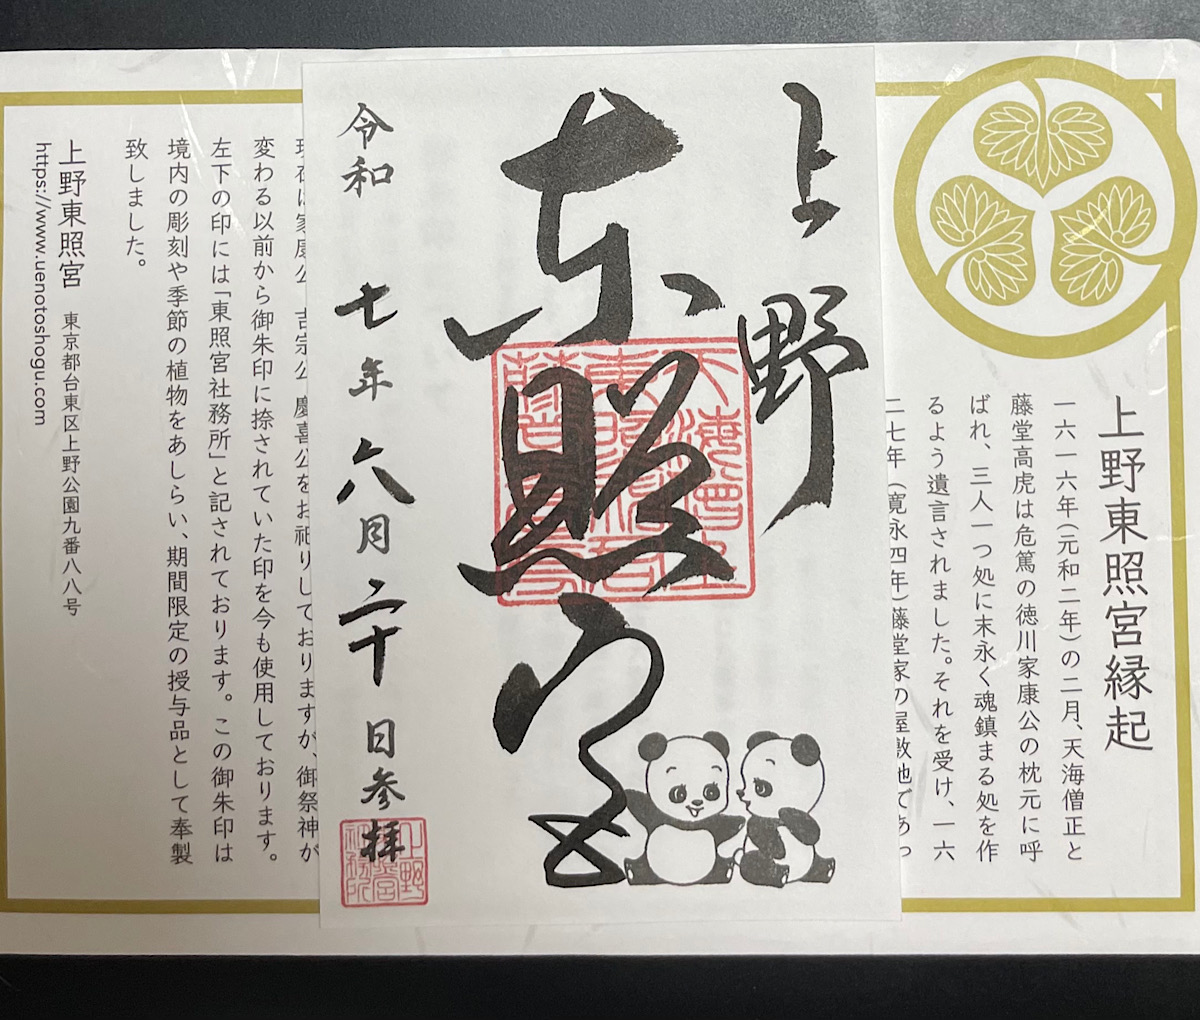 上野東照宮縁起
一六一六年(元和二年)の二月、天海僧正と
藤堂高虎は危篤の徳川家康公の枕元に呼
ばれ、三人一つ処に末永く魂鎮まる処を作
るよう遺言されました。それを受け、一六
二七年(寛永四年)藤堂家の屋敷地であっ
上野
東照宮
令和七年六月二十日参拝
家康公 吉宗公 慶喜公をお祀りしておりますが、御祭神が
変わる以前から御朱印に捺されていた印を今も使用しております。
左下の印には「東照宮社務所」と記されております。この御朱印は
境内の彫刻や季節の植物をあしらい、期間限定の授与品として奉製
致しました。
上野東照宮 東京都台東区上野公園九番八八号
https://www.uenotoshogu.com